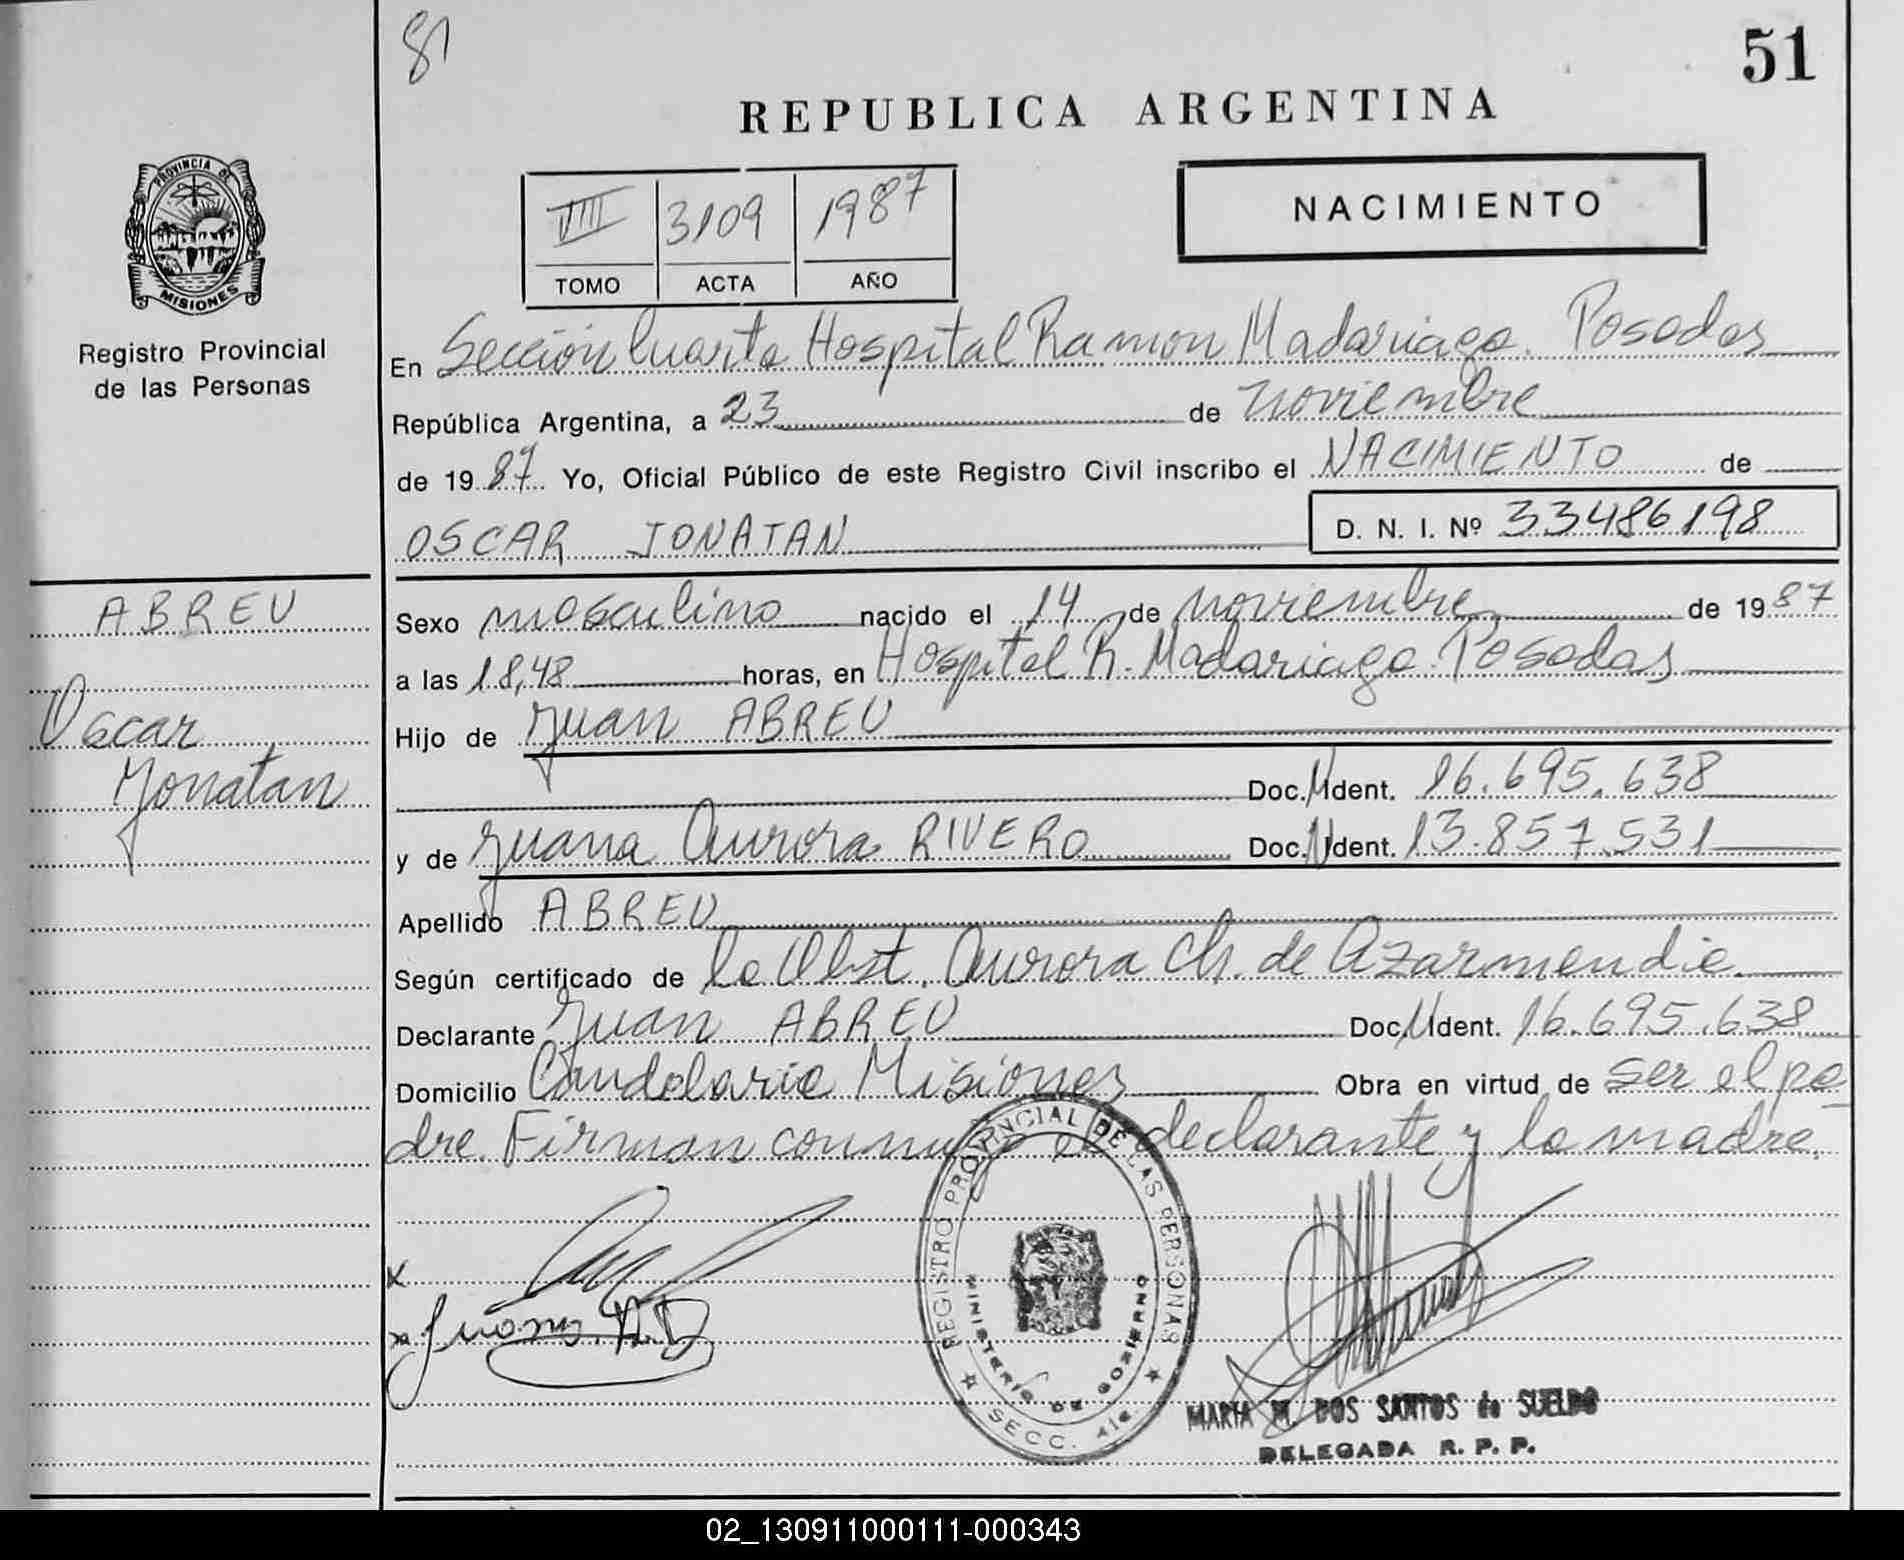 81
51
REPUBLICA ARGENTINA
PROVINCIA DE
MISIONES
Registro Provincial
de las Personas
VIII 3109 1987
TOMO ACTA AÑO
NACIMIENTO
En Sección Cuarta Hospital Ramon Madariaga. Posadas
República Argentina, a 23 de noviembre
de 1987 Yo, Oficial Público de este Registro Civil inscribo el NACIMIENTO de
OSCAR JONATAN D. N. I. Nº 33486198
ABREU
Oscar
Jonatan
Sexo masculino nacido el 14 de noviembre de 1987
a las 18,48 horas, en Hospital R. Madariaga. Posadas
Hijo de Juan ABREU
Doc. Ident. 16.695.638
y de Juana Aurora RIVERO Doc. Ident. 13.857.531
Apellido ABREU
Según certificado de la Obst. Aurora Ch. de Azarmendia
Declarante Juan ABREU Doc. Ident. 16.695.638
Domicilio Candelaria Misiones Obra en virtud de ser el pa
dre. Firman conmigo el declarante y la madre.
x
REGISTRO PROVINCIAL DE LAS PERSONAS
MINISTERIO DE GOBIERNO
SECC. 4ta
MARIA M. DOS SANTOS de SUELDO
DELEGADA R. P. P.
02_130911000111-000343